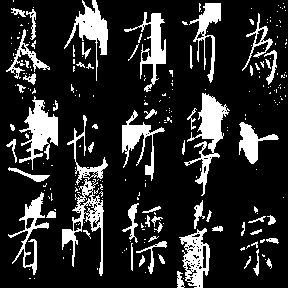 為一宗
而學者
有所標
何也門
人達者